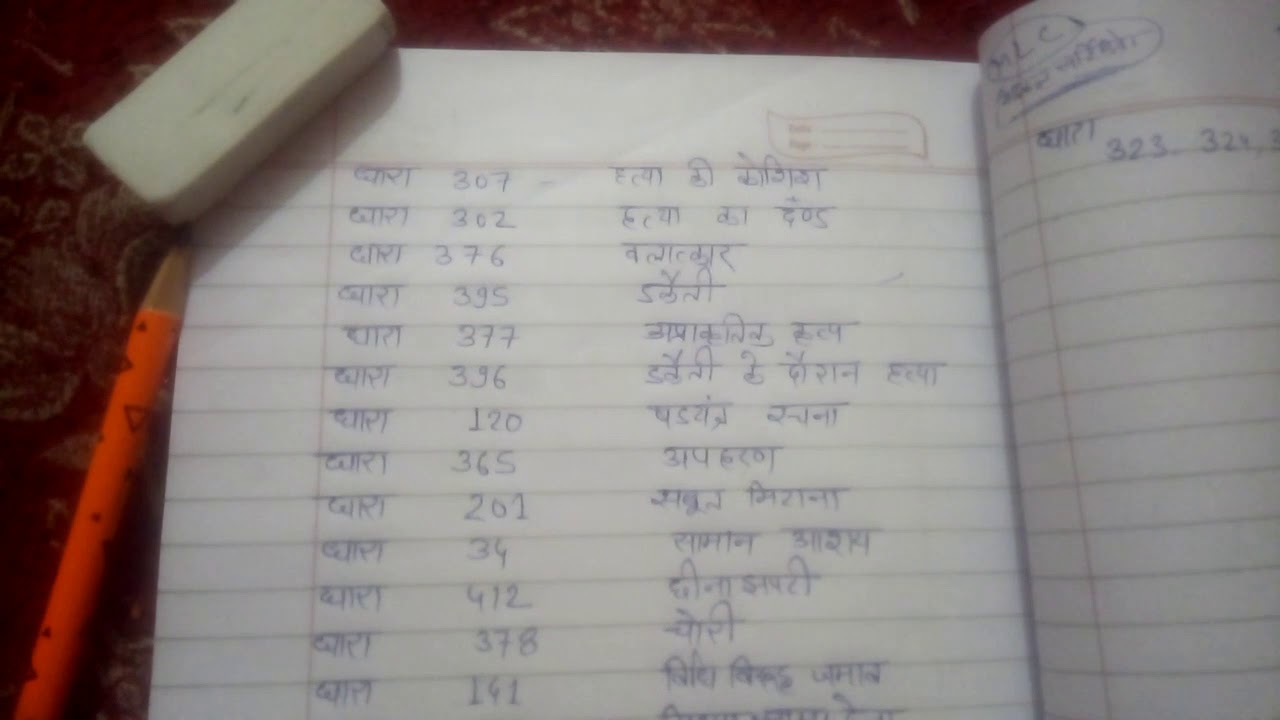 धारा 307 - हत्या की कोशिश
धारा 302 हत्या का दण्ड
धारा 376 बलात्कार
धारा 395 डकैती
धारा 377 अप्राकृतिक कृत्य
धारा 396 डकैती के दौरान हत्या
धारा 120 षडयंत्र रचना
धारा 365 अपहरण
धारा 201 सबूत मिटाना
धारा 34 सामान आशय
धारा 412 छीनाझपटी
धारा 378 चोरी
धारा 141 विधि विरुद्ध जमाव
MLC
धारा 323. 324,